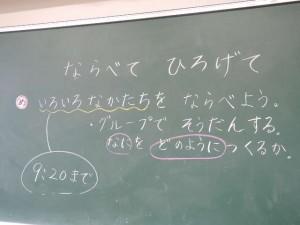 ならべて ひろげて
め いろいろなかたちを ならべよう。
・グループで そうだんする。
なにを どのように つくるか。
9:20まで